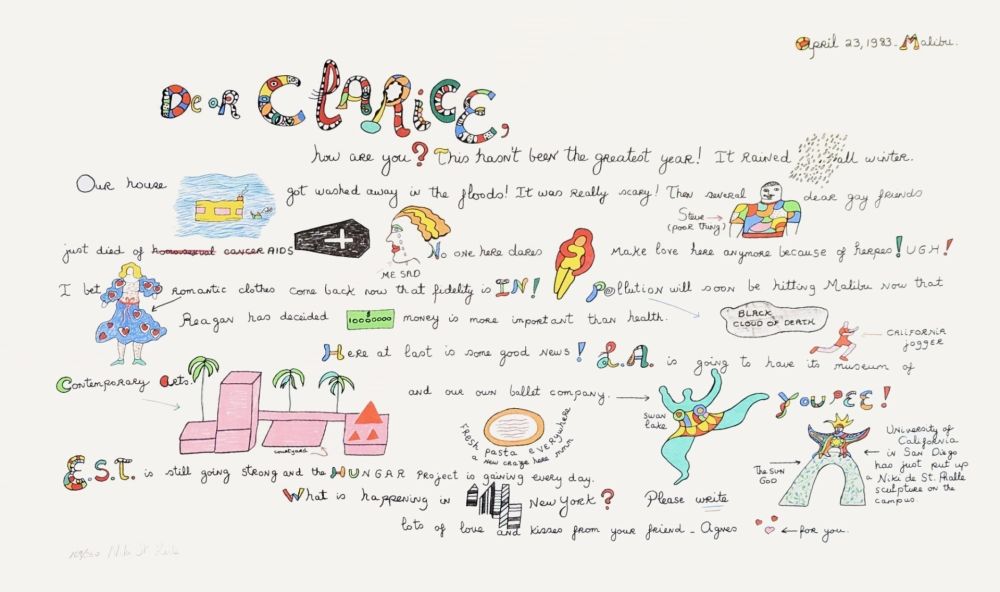 April 23, 1983 - Malibu.
Dear CLARICE,
how are you? This hasn't been the greatest year! It rained all winter.
Our house got washed away in the floods! It was really scary! Then several dear gay friends
Steve →
(poor thing)
just died of homosexual cancer AIDS No one here dares make love here anymore because of herpes! UGH!
ME SAD
I bet romantic clothes come back now that fidelity is IN! Pollution will soon be hitting Malibu now that
Reagan has decided 10000000 money is more important than health.
BLACK
CLOUD OF DEATH
CALIFORNIA
jogger
Here at last is some good news! L.A. is going to have its museum of
Contemporary Arts. and our own ballet company. → YOUPEE!
swan
lake
courtyard
FRESH PASTA EVERYWHERE
a new craze here mmm
The SUN
GOD
University of
California
in San Diego
has just put up
a Niki de St. Phalle
sculpture on the
campus.
E.S.T. is still going strong and the HUNGAR Project is gaining every day.
What is happening in New York? Please write
lots of love and kisses from your friend - Agnes ← for you.